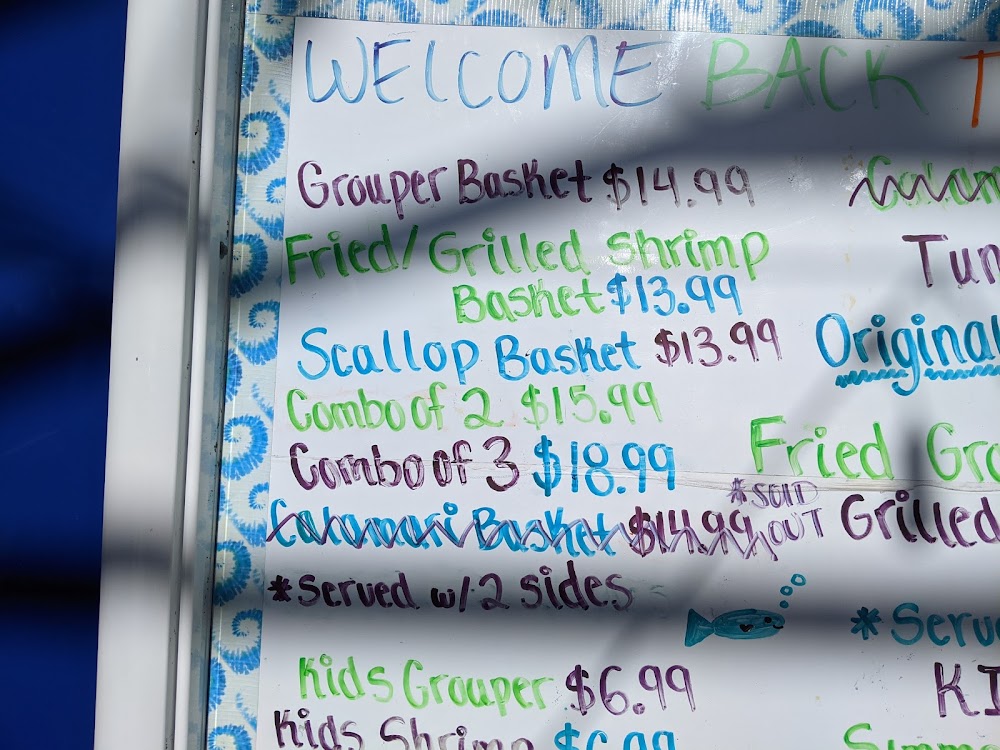 WELCOME BACK T
Grouper Basket $14.99
Fried/Grilled Shrimp
Basket $13.99
Scallop Basket $13.99
Combo of 2 $15.99
Combo of 3 $18.99
Calamari Basket $14.99 *SOLD OUT
*Served w/2 sides
Kids Grouper $6.99
Kids Shrimp $6.99
Calam
Tun
Original
Fried Gro
Grilled
*Serve
KI